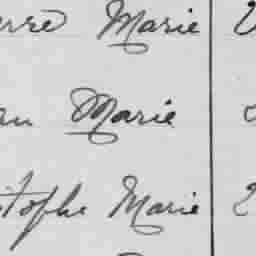 erre Marie
an Marie
stophe Marie 2